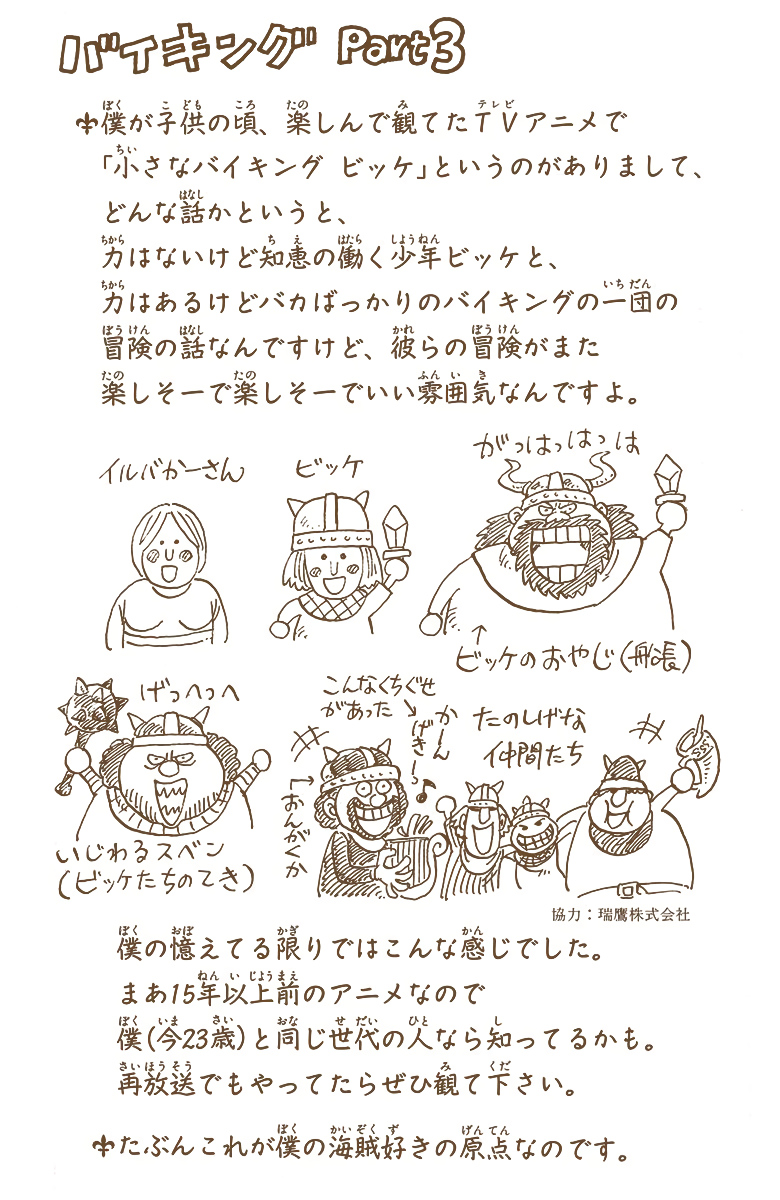 バイキング Part3
⚜僕が子供の頃、楽しんで観てたTVアニメで
「小さなバイキング ビッケ」というのがありまして、
どんな話かというと、
力はないけど知恵の働く少年ビッケと、
力はあるけどバカばっかりのバイキングの一団の
冒険の話なんですけど、彼らの冒険がまた
楽しそーで楽しそーでいい雰囲気なんですよ。
イルバかーさん
ビッケ
がっはっはっはは
ビッケのおやじ(船長)
げっへっへ
いじわるスベン
(ビッケたちのてき)
こんなくちぐせ
があった
かーん
げきーっ♪
おんがくか
たのしげな
仲間たち
協力：瑞鷹株式会社
僕の憶えてる限りではこんな感じでした。
まあ15年以上前のアニメなので
僕(今23歳)と同じ世代の人なら知ってるかも。
再放送でもやってたらぜひ観て下さい。
⚜たぶんこれが僕の海賊好きの原点なのです。